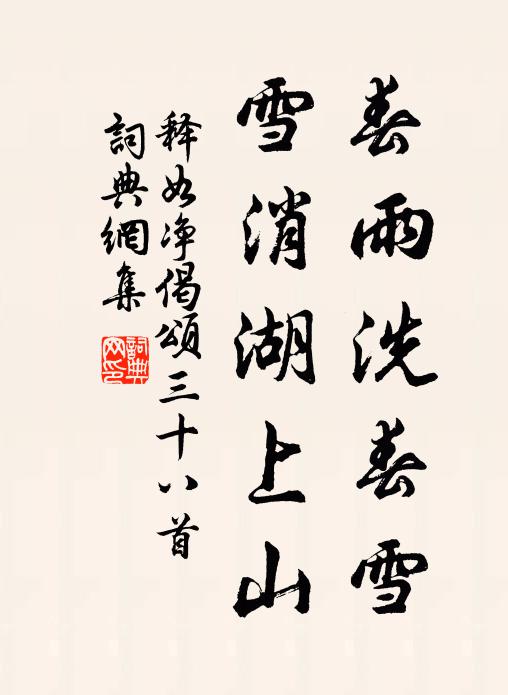 春雨洗春雪
雪消湖上山
释如净偈頌三十八首
詞典網集
詞典網印